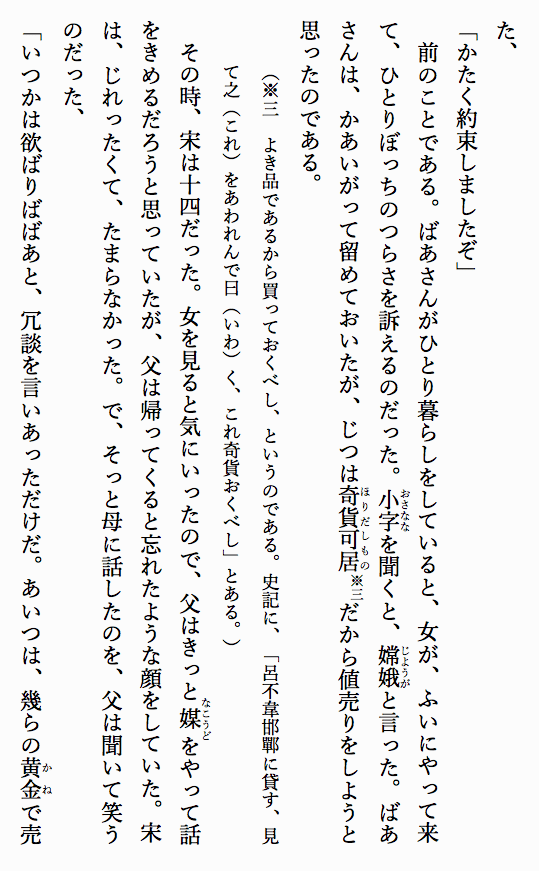 た、
「かたく約束しましたぞ」
　前のことである。ばあさんがひとり暮らしをしていると、女が、ふいにやって来
て、ひとりぼっちのつらさを訴えるのだった。小字おさななを聞くと、嫦娥じようがと言った。ばあ
さんは、かあいがって留めておいたが、じつは奇貨可居ほりだしもの※三だから値売りをしようと
思ったのである。
（※三　よき品であるから買っておくべし、というのである。史記に、「呂不韋邯鄲に貸す、見
て之（これ）をあわれんで曰（いわ）く、これ奇貨おくべし」とある。）
　その時、宋は十四だった。女を見ると気にいったので、父はきっと媒なこうどをやって話
をきめるだろうと思っていたが、父は帰ってくると忘れたような顔をしていた。宋
は、じれったくて、たまらなかった。で、そっと母に話したのを、父は聞いて笑う
のだった、
「いつかは欲ばりばばあと、冗談を言いあっただけだ。あいつは、幾らの黄金かねで売